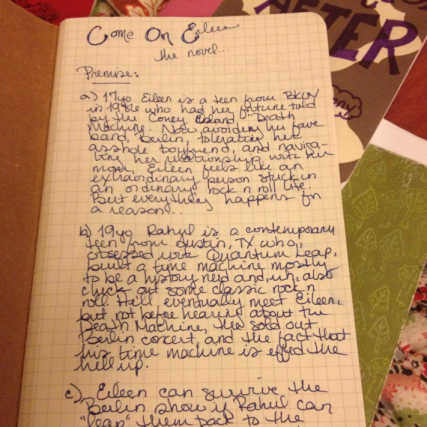 Come On Eileen
the novel...
Premise:
a) 17yo Eileen is a teen from BKLYN
in 1986 who had her fortune told
by the Coney Island "Death
Machine." Now avoiding her fave
band, Berlin, tolerating her
asshole boyfriend, and naviga-
ting her relationship with her
mom, Eileen feels like an
extraordinary person stuck in
an ordinary rock n roll life.
But everything happens for
a reason...
b) 19yo Rahul is a contemporary
teen from Austin, TX who,
obsessed with Quantum Leap,
built a time machine, mostly
to be a history nerd and, uh, also
check out some classic rock n
roll. He'll eventually meet Eileen,
but not before hearing about the
Death Machine, the sold out
Berlin concert, and the fact that
his time machine is effed the
hell up.
c) Eileen can survive the
Berlin show if Rahul can
"leap" them back to the
AFTER